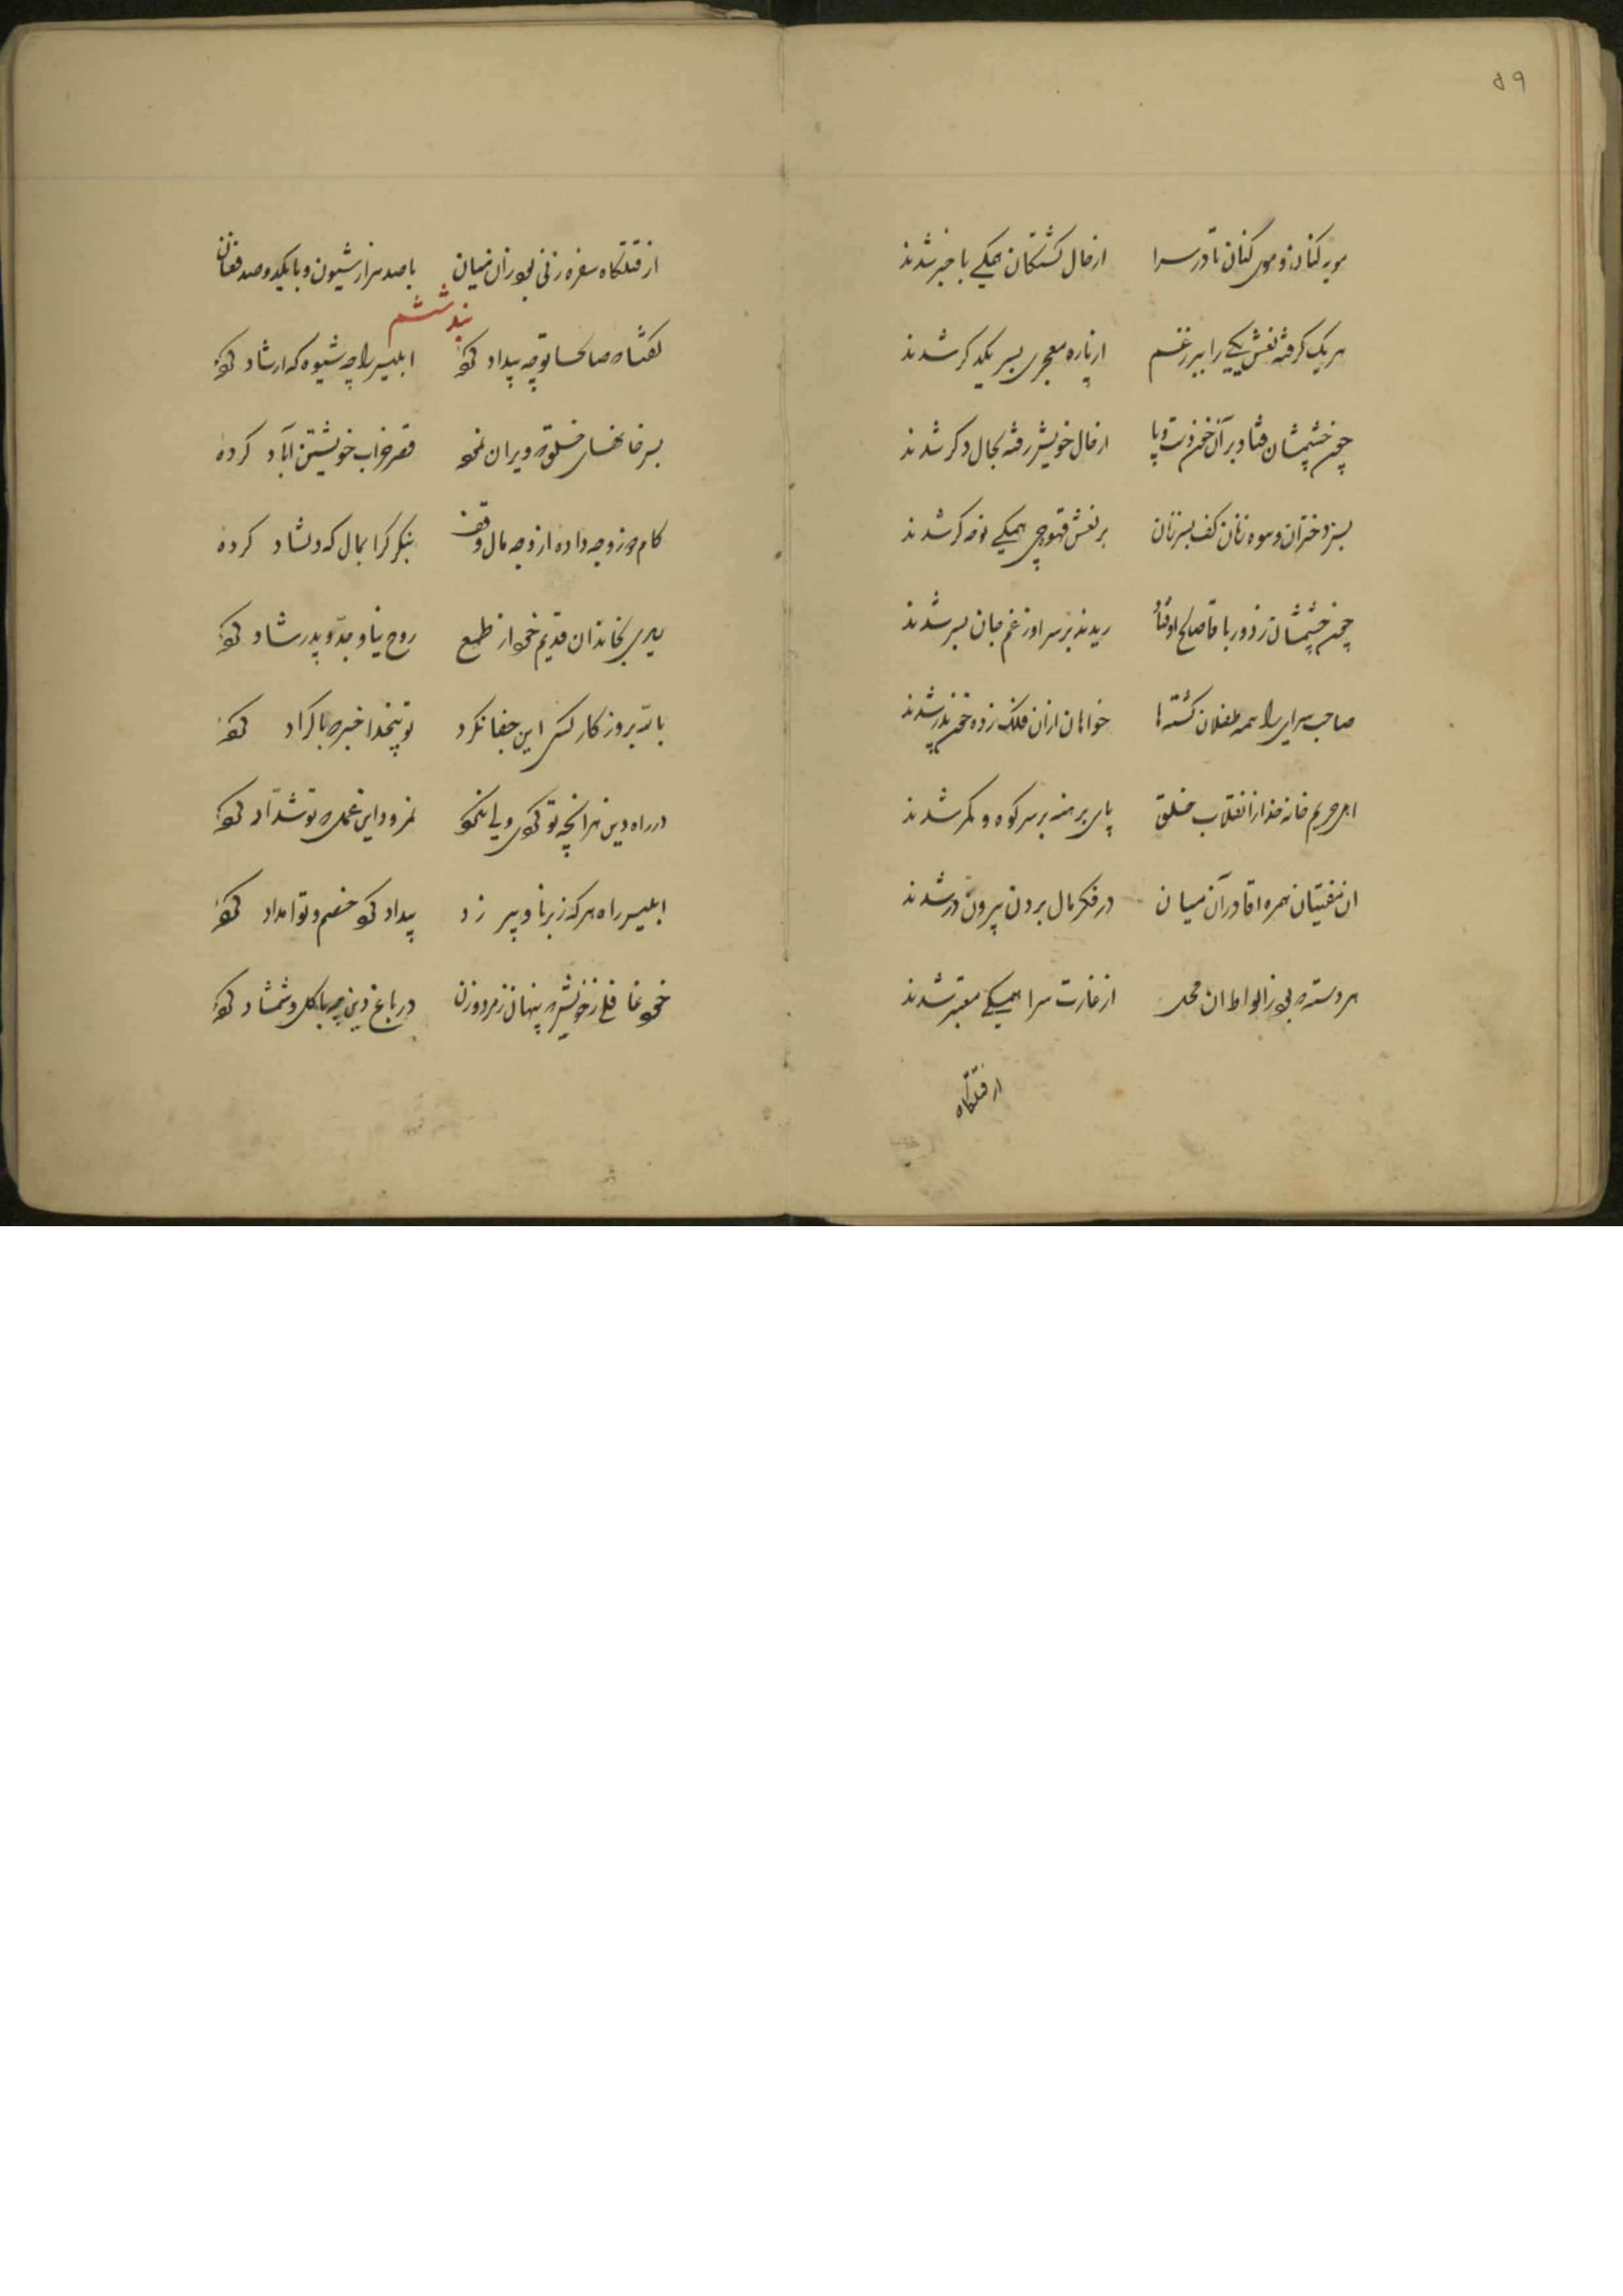 ۵۹
مویه کنان و موی کنان تا در سرا از حال کشتکان همکی با خبر شدند
هر یک کرفته نعش یکی را ببر ز غم از پاره معجری بسر یکدکر شدند
چون چشمشان فتاد بر آن دست و پا از حال خویش رفته بحال دکر شدند
بس دختران و بیوه زنان کف بسر زنان بر نعش قهوه چی همکی نوحه کر شدند
چون چشمشان ز دور باقا صالح اوفتاد ریدند بر سر او ز غم جان بسر شدند
صاحب سرای را همه طفلان کشته ها خواهان از آن فلک زده خون پدر شدند
اهل حریم خانه خدا ز انقلاب خلق پای برهنه بر سر کوه و کمر شدند
ان مفتیان همره اقا در آن میان در فکر مال بردن بیرون در شدند
هر دسته از الواط ان محل از غارت سرا همیکی معتبر شدند
از قتلکاه
از قتلکاه سفره زنی بود زان میان با صد هزار شیون و با یکدو صد فغان
بند ششم
کفتا که صالحا تو چه بیداد کرده ابلیس را چه شیوه که ارشاد کرده
بس خانهای خلق که ویران نموده قصر خراب خویشتن آباد کرده
کام دو زوجه داده از وجه مال وقف بنکر کرا بمال که دلشاد کرده
بخاندان قدیم خود از طمع روح نیا و جد و پدر شاد کرده
بالله بروزکار کسی این جفا نکرد تو بیخدا خبره باکراد کرده
در راه دین هر آنچه تو کردی ویا نکرد نمرود این عمل نه تو شداد کرده
ابلیس راه هر که ز برنا و پیر زد بیداد کرد خصم و تو امداد کرده
خود غافلی ز خویش که پنهان ز مرد و زن در باغ دین چه با کل و شمشاد کرده